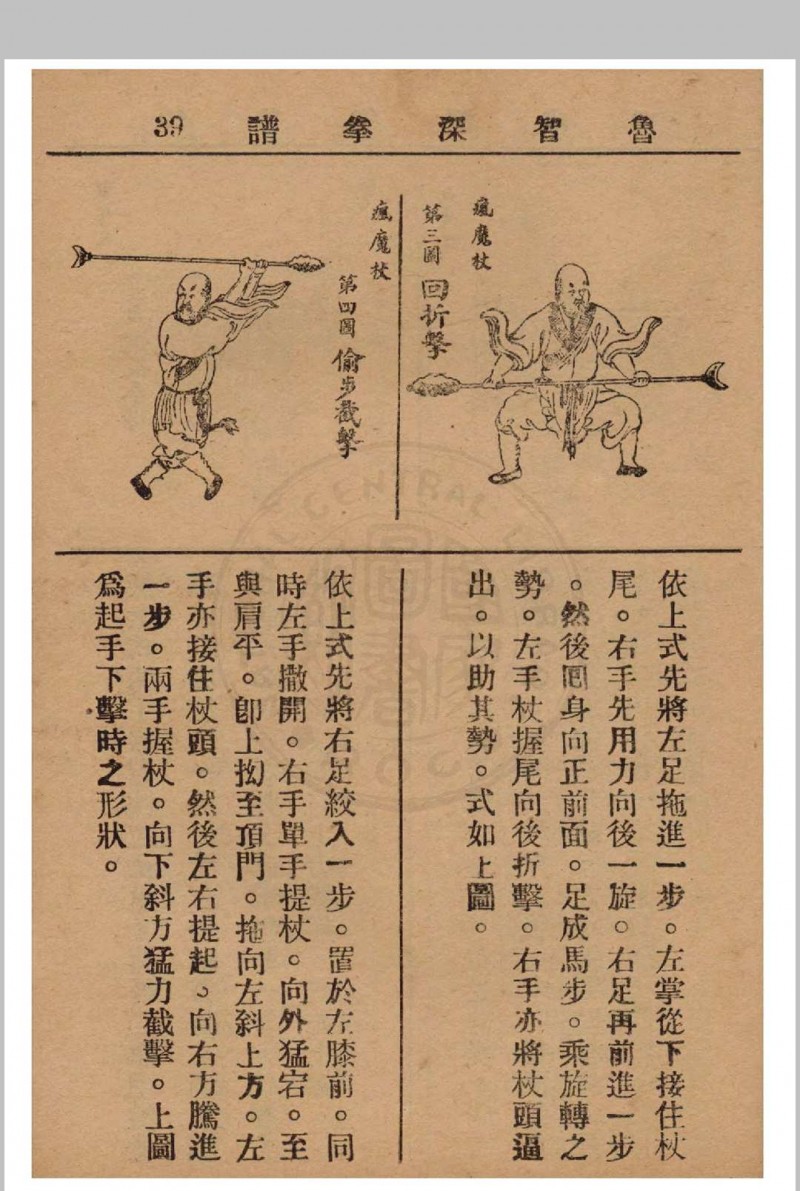 魯智深拳譜 39
瘋魔杖
第三圖 回折擊
依上式先將左足拖進一步。左掌從下接住杖
尾。右手先用力向後一旋。右足再前進一步
。然後回身向正前面。足成馬步。乘旋轉之
勢。左手杖握尾向後折擊。右手亦將杖頭逼
出。以助其勢。式如上圖。
瘋魔杖
第四圖 偷步截擊
依上式先將右足絞入一步。置於左膝前。同
時左手撒開。右手單手提杖。向外猛宕。至
與肩平。卽上抝至頂門。拖向左斜上方。左
手亦接住杖頭。然後左右提起。向右方騰進
一步。兩手握杖。向下斜方猛力截擊。上圖
爲起手下擊時之形狀。
CENTRAL